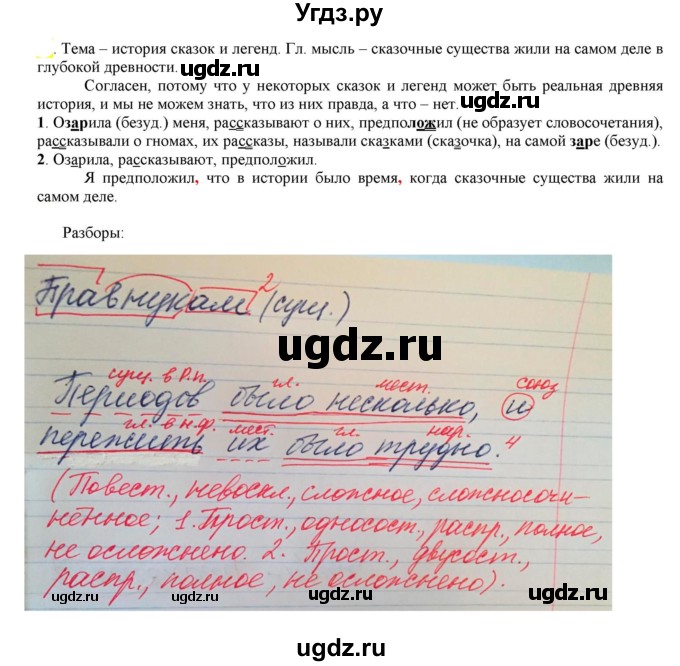 Угдз.ру
. Тема – история сказок и легенд. Гл. мысль – сказочные существа жили на самом деле в
глубокой древности.
ugdz.ru
ugdz.ru
Согласен, потому что у некоторых сказок и легенд может быть реальная древняя
история, и мы не можем знать, что из них правда, а что – нет.
ugdz.ru
1. Озарила (безуд.) меня, рассказывают о них, предположил (не образует словосочетания),
рассказывали о гномах, их рассказы, называли сказками (сказочка), на самой заре (безуд.).
2. Озарила, рассказывают, предположил.
ugdz.ru
ugdz.ru
Я предположил, что в истории было время, когда сказочные существа жили на
самом деле.
Разборы:
ugdz.ru
2
Правнукам (сущ.)
ugdz.ru
сущ. в Р.п. гл. мест. союз
Периодов было несколько, и
гл. в н.ф. мест. гл. нар.
пережить их было трудно. 4
ugdz.ru
ugdz.ru
(Повест., невоскл., сложное, сложносочи-
нённое; 1. Прост., односост., распр., полное,
не осложнено. 2. Прост., двусост.,
ugdz.ru
распр., полное, не осложнено).
ugdz.ru
ugdz.ru
ugdz.ru
ugdz.ru